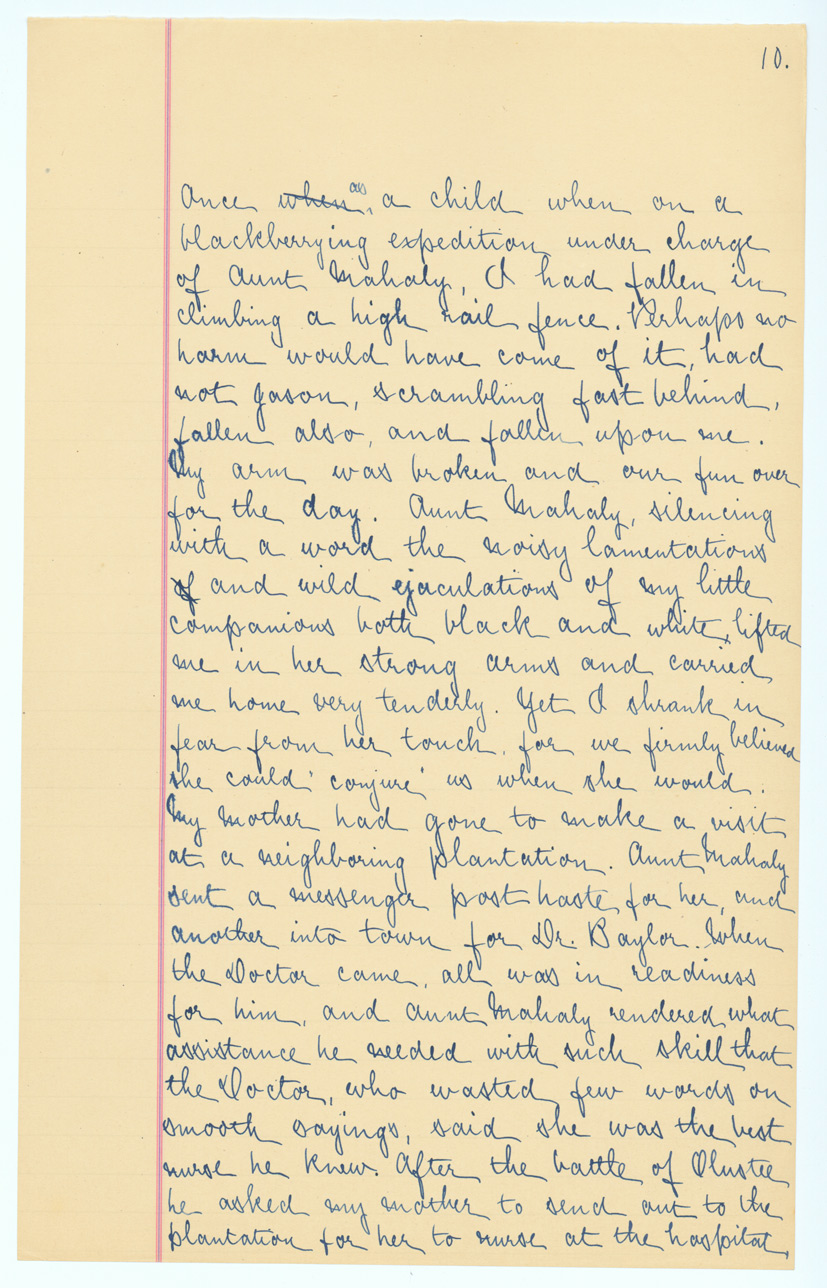 10.
Once when as, a child when on a
blackberrying expedition under charge
of Aunt Mahaly, I had fallen in
climbing a high rail fence. Perhaps no
harm would have come of it, had
not Jason, scrambling fast behind,
fallen also, and fallen upon me.
My arm was broken and our fun over
for the day. Aunt Mahaly, silencing
with a word the noisy lamentations
of and wild ejaculations of my little
companions both black and white, lifted
me in her strong arms and carried
me home very tenderly. Yet I shrank in
fear from her touch, for we firmly believed
she could 'conjure' us when she would.
My Mother had gone to make a visit
at a neighboring plantation. Aunt Mahaly
sent a messenger post haste for her, and
another into town for Dr. Baylor. When
the Doctor came, all was in readiness
for him, and Aunt Mahaly rendered what
assistance he needed with such skill that
the Doctor, who wasted few words on
smooth sayings, said she was the best
nurse he knew. After the battle of Olustee
he asked my mother to send out to the
plantation for her to nurse at the hospital,